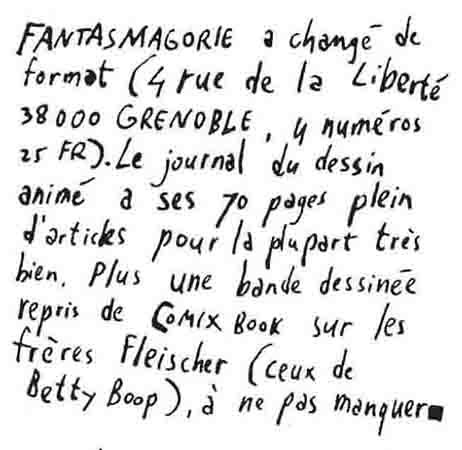 FANTASMAGORIE a changé de
format (4 rue de la Liberté
38000 GRENOBLE, 4 numéros
25 FR). Le journal du dessin
animé a ses 70 pages plein
d'articles pour la plupart très
bien. Plus une bande dessinée
repris de COMIX BOOK sur les
frères Fleischer (ceux de
Betty Boop), à ne pas manquer■